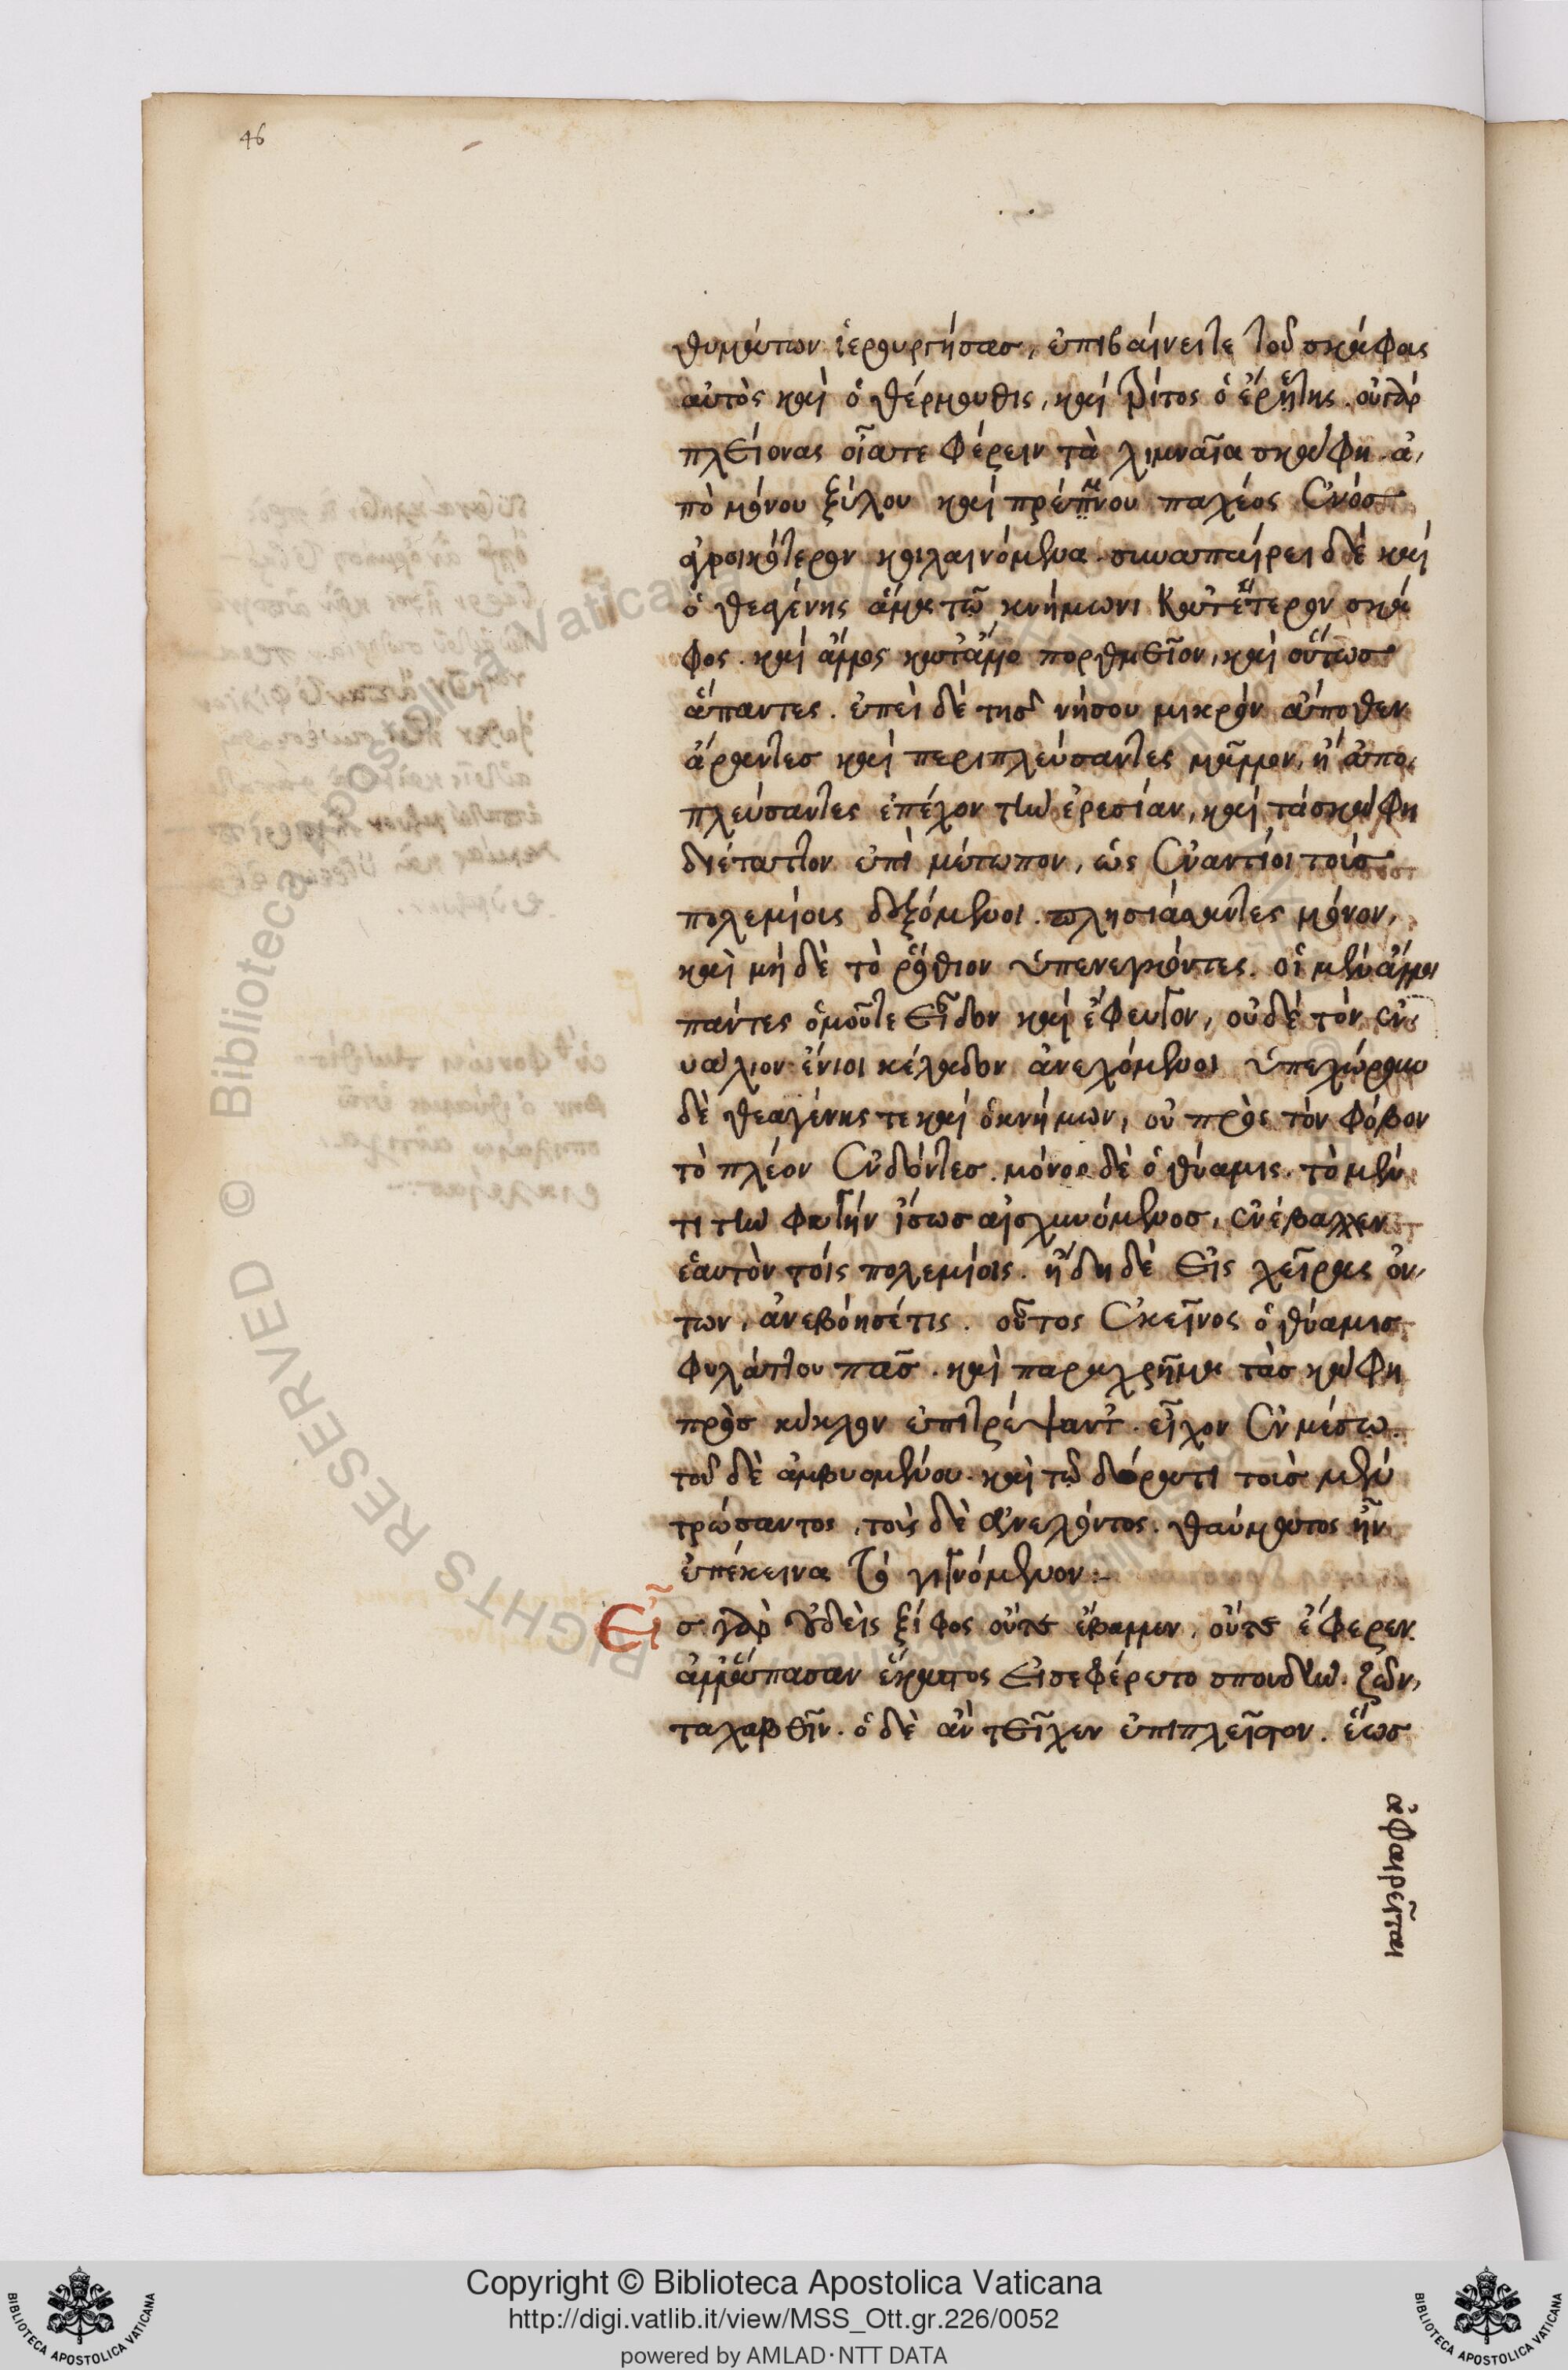 46
θυμάτων ἱερουργήσας, ἐπιβαίνει τε τοῦ σκάφους
αὐτὸς καὶ ὁ θέρμουθις, καὶ τρίτος ὁ ἐρέτης. οὐ γὰρ
πλείονας οἷά τε φέρειν τὰ λιμναῖα σκάφη. ἀ,
πὸ μόνου ξύλου καὶ πρέμνου παχέος ἑνὸς
ἀγροικότερον κοιλαινόμενα. συναπαίρει δὲ καὶ
ὁ θεαγένης ἅμα τῷ κνήμωνι καθ' ἕτερον σκά
φος. καὶ ἄλλος κατ' ἄλλο πορθμεῖον, καὶ οὕτως
ἅπαντες. ἐπεὶ δὲ τῆς νήσου μικρὸν ἄποθεν
ἄραντες καὶ περιπλεύσαντες μᾶλλον, ἢ ἀπο,
πλεύσαντες ἐπέχον τὴν ἐρεσίαν, καὶ τὰ σκάφη
διέταττον ἐπὶ μέτωπον, ὡς ἐναντίοι τοῖς
πολεμίοις δεξόμενοι. πλησιάσαντες μόνον,
καὶ μὴ δὲ τὸ ῥόθιον ὑπενεγκόντες. οἱ μὲν ἄλλοι
πάντες ὁμοῦ τε εἶδον καὶ ἔφευγον, οὐδὲ τὸν ἐν
υάλιον ἔνιοι κέλαδον ἀνεχόμενοι ὑπεχώρουν
δὲ θεαγένης τε καὶ ὁ κνήμων, οὐ πρὸς τὸν φόβον
τὸ πλέον ἐνδόντες. μόνος δὲ ὁ θύαμις. τὸ μέν
τι τὴν φυγὴν ἴσως αἰσχυνόμενος, ἐνέβαλλεν
ἑαυτὸν τοῖς πολεμίοις. ἤδη δὲ εἰς χεῖρας ὄν,
των, ἀνεβόησέ τις. οὗτος ἐκεῖνος ὁ θύαμις
φυλάττου πᾶς. καὶ παραχρῆμα τὰ σκάφη
πρὸς κύκλον ἐπιτρέψαντ. εἶχον ἐν μέσω.
τοῦ δὲ ἀμυνομένου. καὶ τῷ δόρατι τοὺς μὲν
τρώσαντος, τοὺς δὲ ἀνελόντος. θαύματος ἦν
ἐπέκεινα τὸ γιγνόμενον:-
Εἷ
σ γὰρ οὐδεὶς ξίφος οὔτε ἔβαλλεν, οὔτε ἔφερεν.
ἀλλ' ἅπασαν ἕκαστος εἰσεφέρετο σπουδὴν. ζῶν,
τα λαβεῖν. ὁ δὲ ἀντεῖχεν ἐπιπλεῖστον. ἕως
ἀφαιρεῖται
Copyright © Biblioteca Apostolica Vaticana
http://digi.vatlib.it/view/MSS_Ott.gr.226/0052
powered by AMLAD·NTT DATA